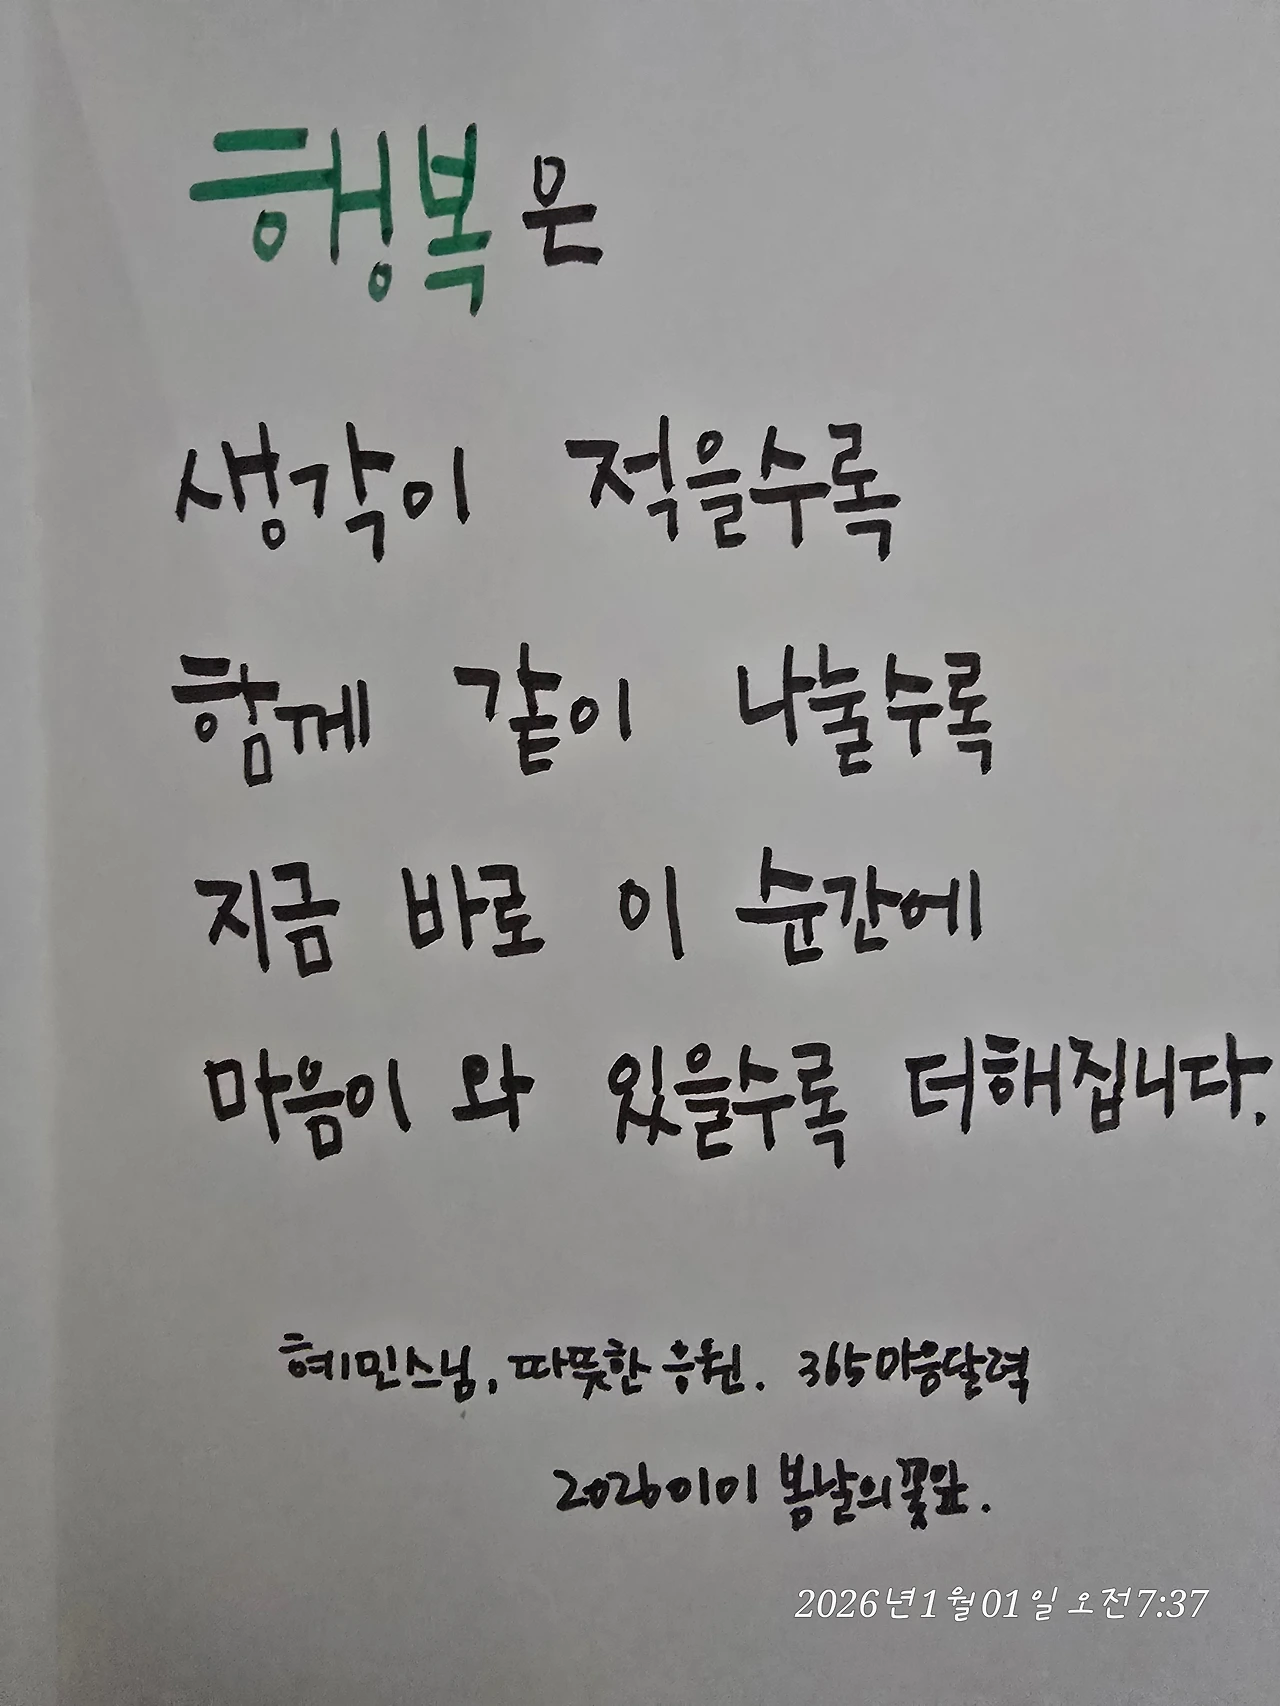 행복은
생각이 적을수록
함께 같이 나눌수록
지금 바로 이 순간에
마음이 와 있을수록 더해집니다.
혜민스님, 따뜻한 응원. 365마음달력
20260101 봄날의꽃잎.
2026년1월01일 오전7:37